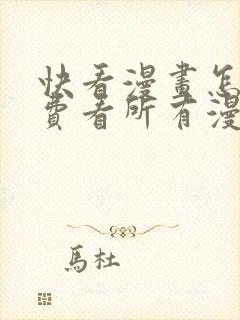 快看漫畫怎
費看所有漫
馬杜